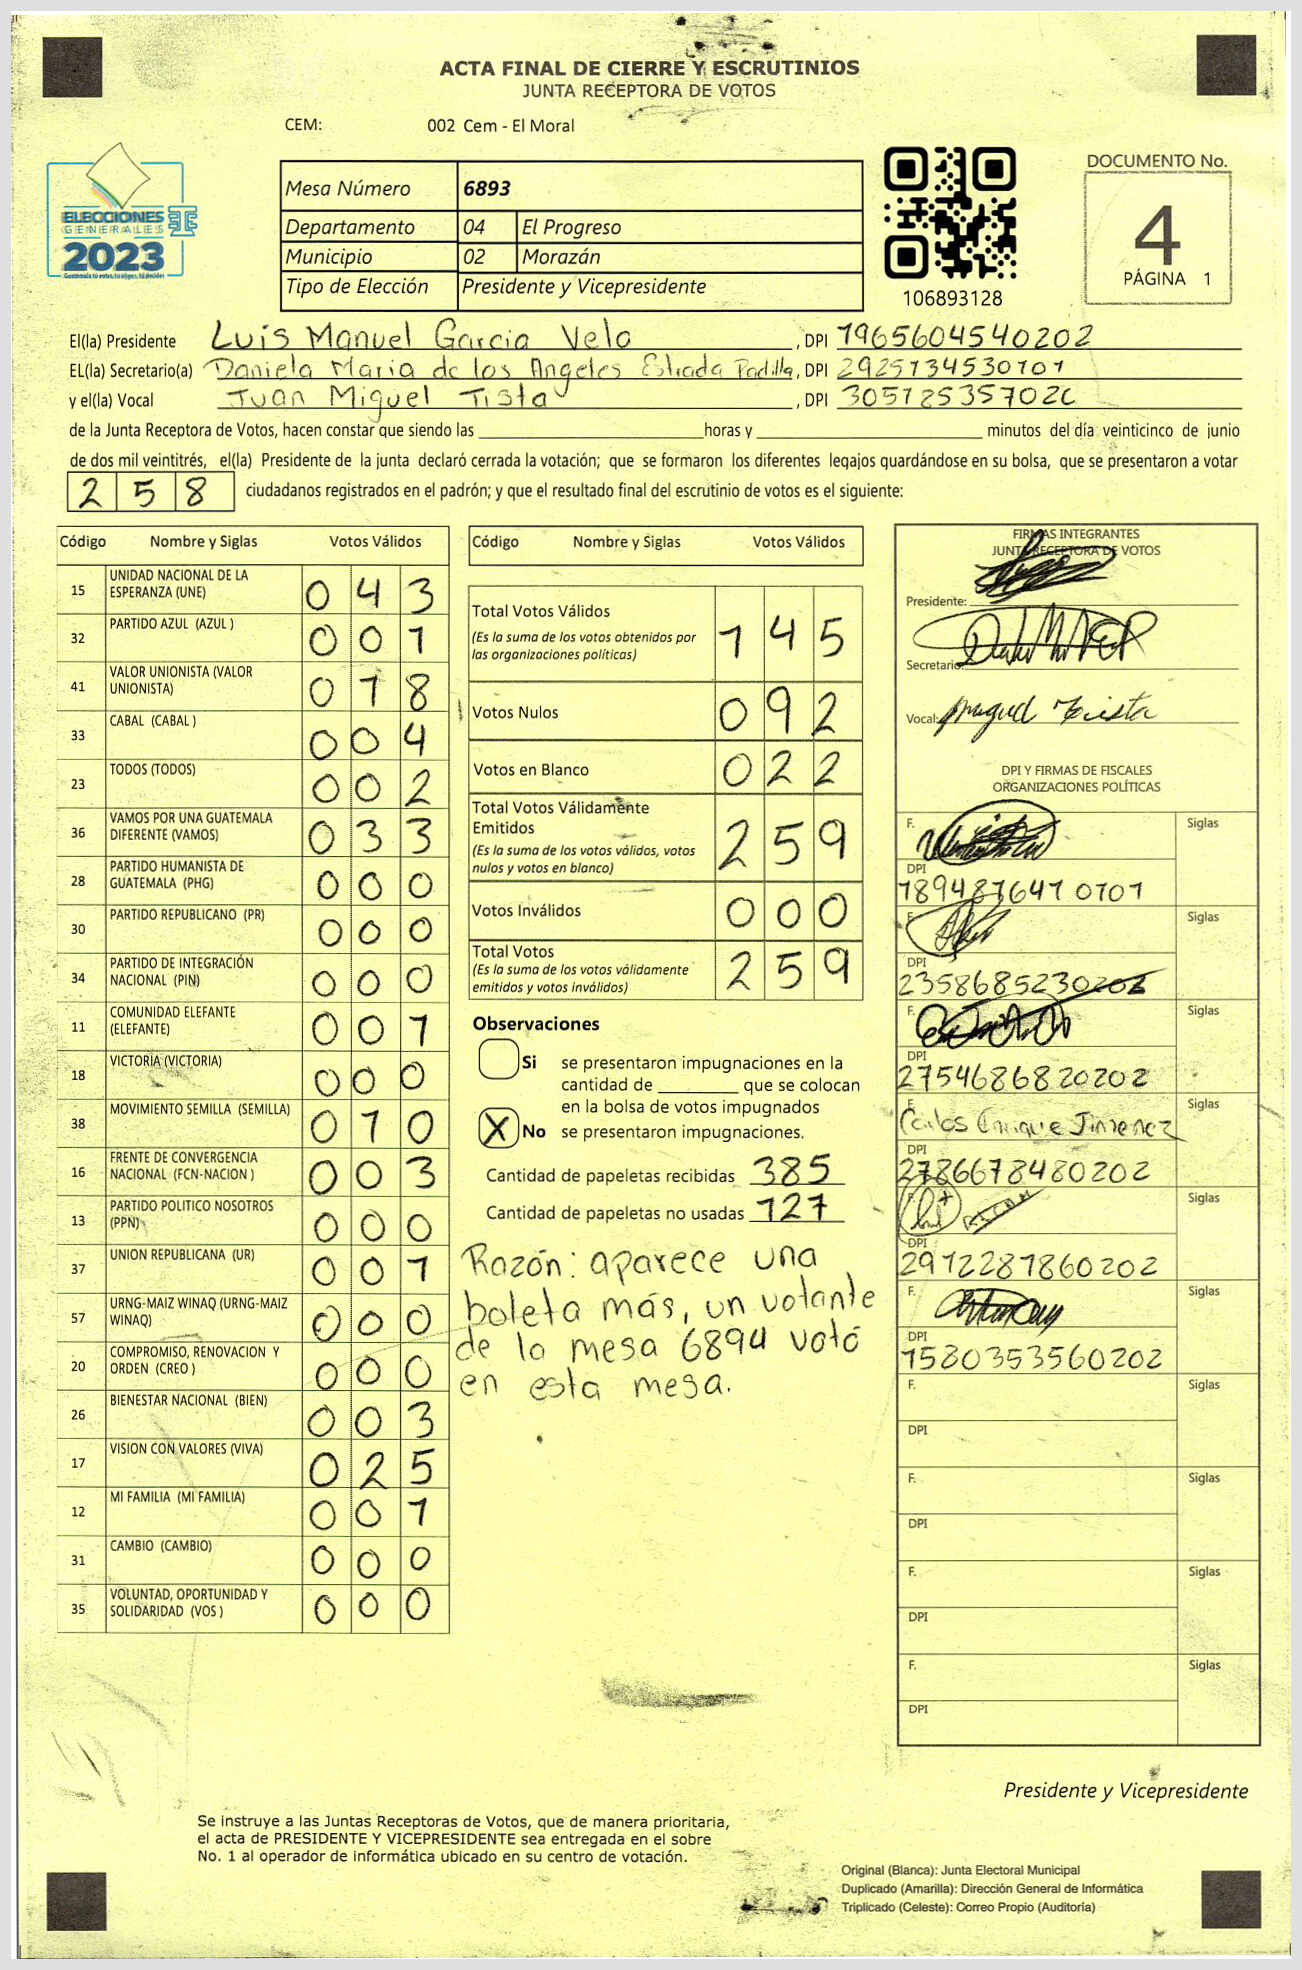 ACTA FINAL DE CIERRE Y ESCRUTINIOS
JUNTA RECEPTORA DE VOTOS
CEM: 002 Cem - El Moral
ELECCIONES
GENERALES
2023
Mesa Número 6893
Departamento 04 El Progreso
Municipio 02 Morazán
Tipo de Elección Presidente y Vicepresidente
106893128
DOCUMENTO No.
4
PÁGINA 1
El(la) Presidente Luis Manuel Garcia Vela, DPI 1965604540202
EL(la) Secretario(a) Daniela Maria de los Angeles Estrada Padilla, DPI 2925134530101
y el(la) Vocal Juan Miguel Tista, DPI
de la Junta Receptora de Votos, hacen constar que siendo las horas y minutos del día veinticinco de junio
de dos mil veintitrés, el(la) Presidente de la junta declaró cerrada la votación; que se formaron los diferentes legajos guardándose en su bolsa, que se presentaron a votar
258 ciudadanos registrados en el padrón; y que el resultado final del escrutinio de votos es el siguiente:
Código Nombre y Siglas Votos Válidos
15 UNIDAD NACIONAL DE LA ESPERANZA (UNE) 043
32 PARTIDO AZUL (AZUL ) 001
41 VALOR UNIONISTA (VALOR UNIONISTA) 018
33 CABAL (CABAL ) 004
23 TODOS (TODOS) 002
36 VAMOS POR UNA GUATEMALA DIFERENTE (VAMOS) 033
28 PARTIDO HUMANISTA DE GUATEMALA (PHG) 000
30 PARTIDO REPUBLICANO (PR) 000
34 PARTIDO DE INTEGRACIÓN NACIONAL (PIN) 000
11 COMUNIDAD ELEFANTE (ELEFANTE) 001
18 VICTORIA (VICTORIA) 000
38 MOVIMIENTO SEMILLA (SEMILLA) 010
16 FRENTE DE CONVERGENCIA NACIONAL (FCN-NACION ) 003
13 PARTIDO POLITICO NOSOTROS (PPN) 000
37 UNION REPUBLICANA (UR) 001
57 URNG-MAIZ WINAQ (URNG-MAIZ WINAQ) 000
20 COMPROMISO, RENOVACION Y ORDEN (CREO ) 000
26 BIENESTAR NACIONAL (BIEN) 003
17 VISION CON VALORES (VIVA) 025
12 MI FAMILIA (MI FAMILIA) 001
31 CAMBIO (CAMBIO) 000
35 VOLUNTAD, OPORTUNIDAD Y SOLIDARIDAD (VOS ) 000
Código Nombre y Siglas Votos Válidos
Total Votos Válidos 145
(Es la suma de los votos obtenidos por las organizaciones políticas)
Votos Nulos 092
Votos en Blanco 022
Total Votos Válidamente Emitidos 259
(Es la suma de los votos válidos, votos nulos y votos en blanco)
Votos Inválidos 000
Total Votos 259
(Es la suma de los votos válidamente emitidos y votos inválidos)
Observaciones
Si se presentaron impugnaciones en la
cantidad de que se colocan
en la bolsa de votos impugnados
X No se presentaron impugnaciones.
Cantidad de papeletas recibidas 385
Cantidad de papeletas no usadas 127
Razón: aparece una
boleta más, un votante
de la mesa 6894 votó
en esta mesa.
FIRMAS INTEGRANTES
JUNTA RECEPTORA DE VOTOS
Presidente:
Secretario:
Vocal: Miguel Tista
DPI Y FIRMAS DE FISCALES
ORGANIZACIONES POLÍTICAS
F. Siglas
DPI
1894876470101
F. Siglas
DPI
2358685230202
F. Siglas
DPI
2754686820202
F. Carlos Enrique Jimenez Siglas
DPI
2786678480202
F. Siglas
DPI
2972287860202
F. Siglas
DPI
1580353560202
F. Siglas
DPI
F. Siglas
DPI
F. Siglas
DPI
F. Siglas
DPI
Presidente y Vicepresidente
Se instruye a las Juntas Receptoras de Votos, que de manera prioritaria,
el acta de PRESIDENTE Y VICEPRESIDENTE sea entregada en el sobre
No. 1 al operador de informática ubicado en su centro de votación.
Original (Blanca): Junta Electoral Municipal
Duplicado (Amarilla): Dirección General de Informática
Triplicado (Celeste): Correo Propio (Auditoría)